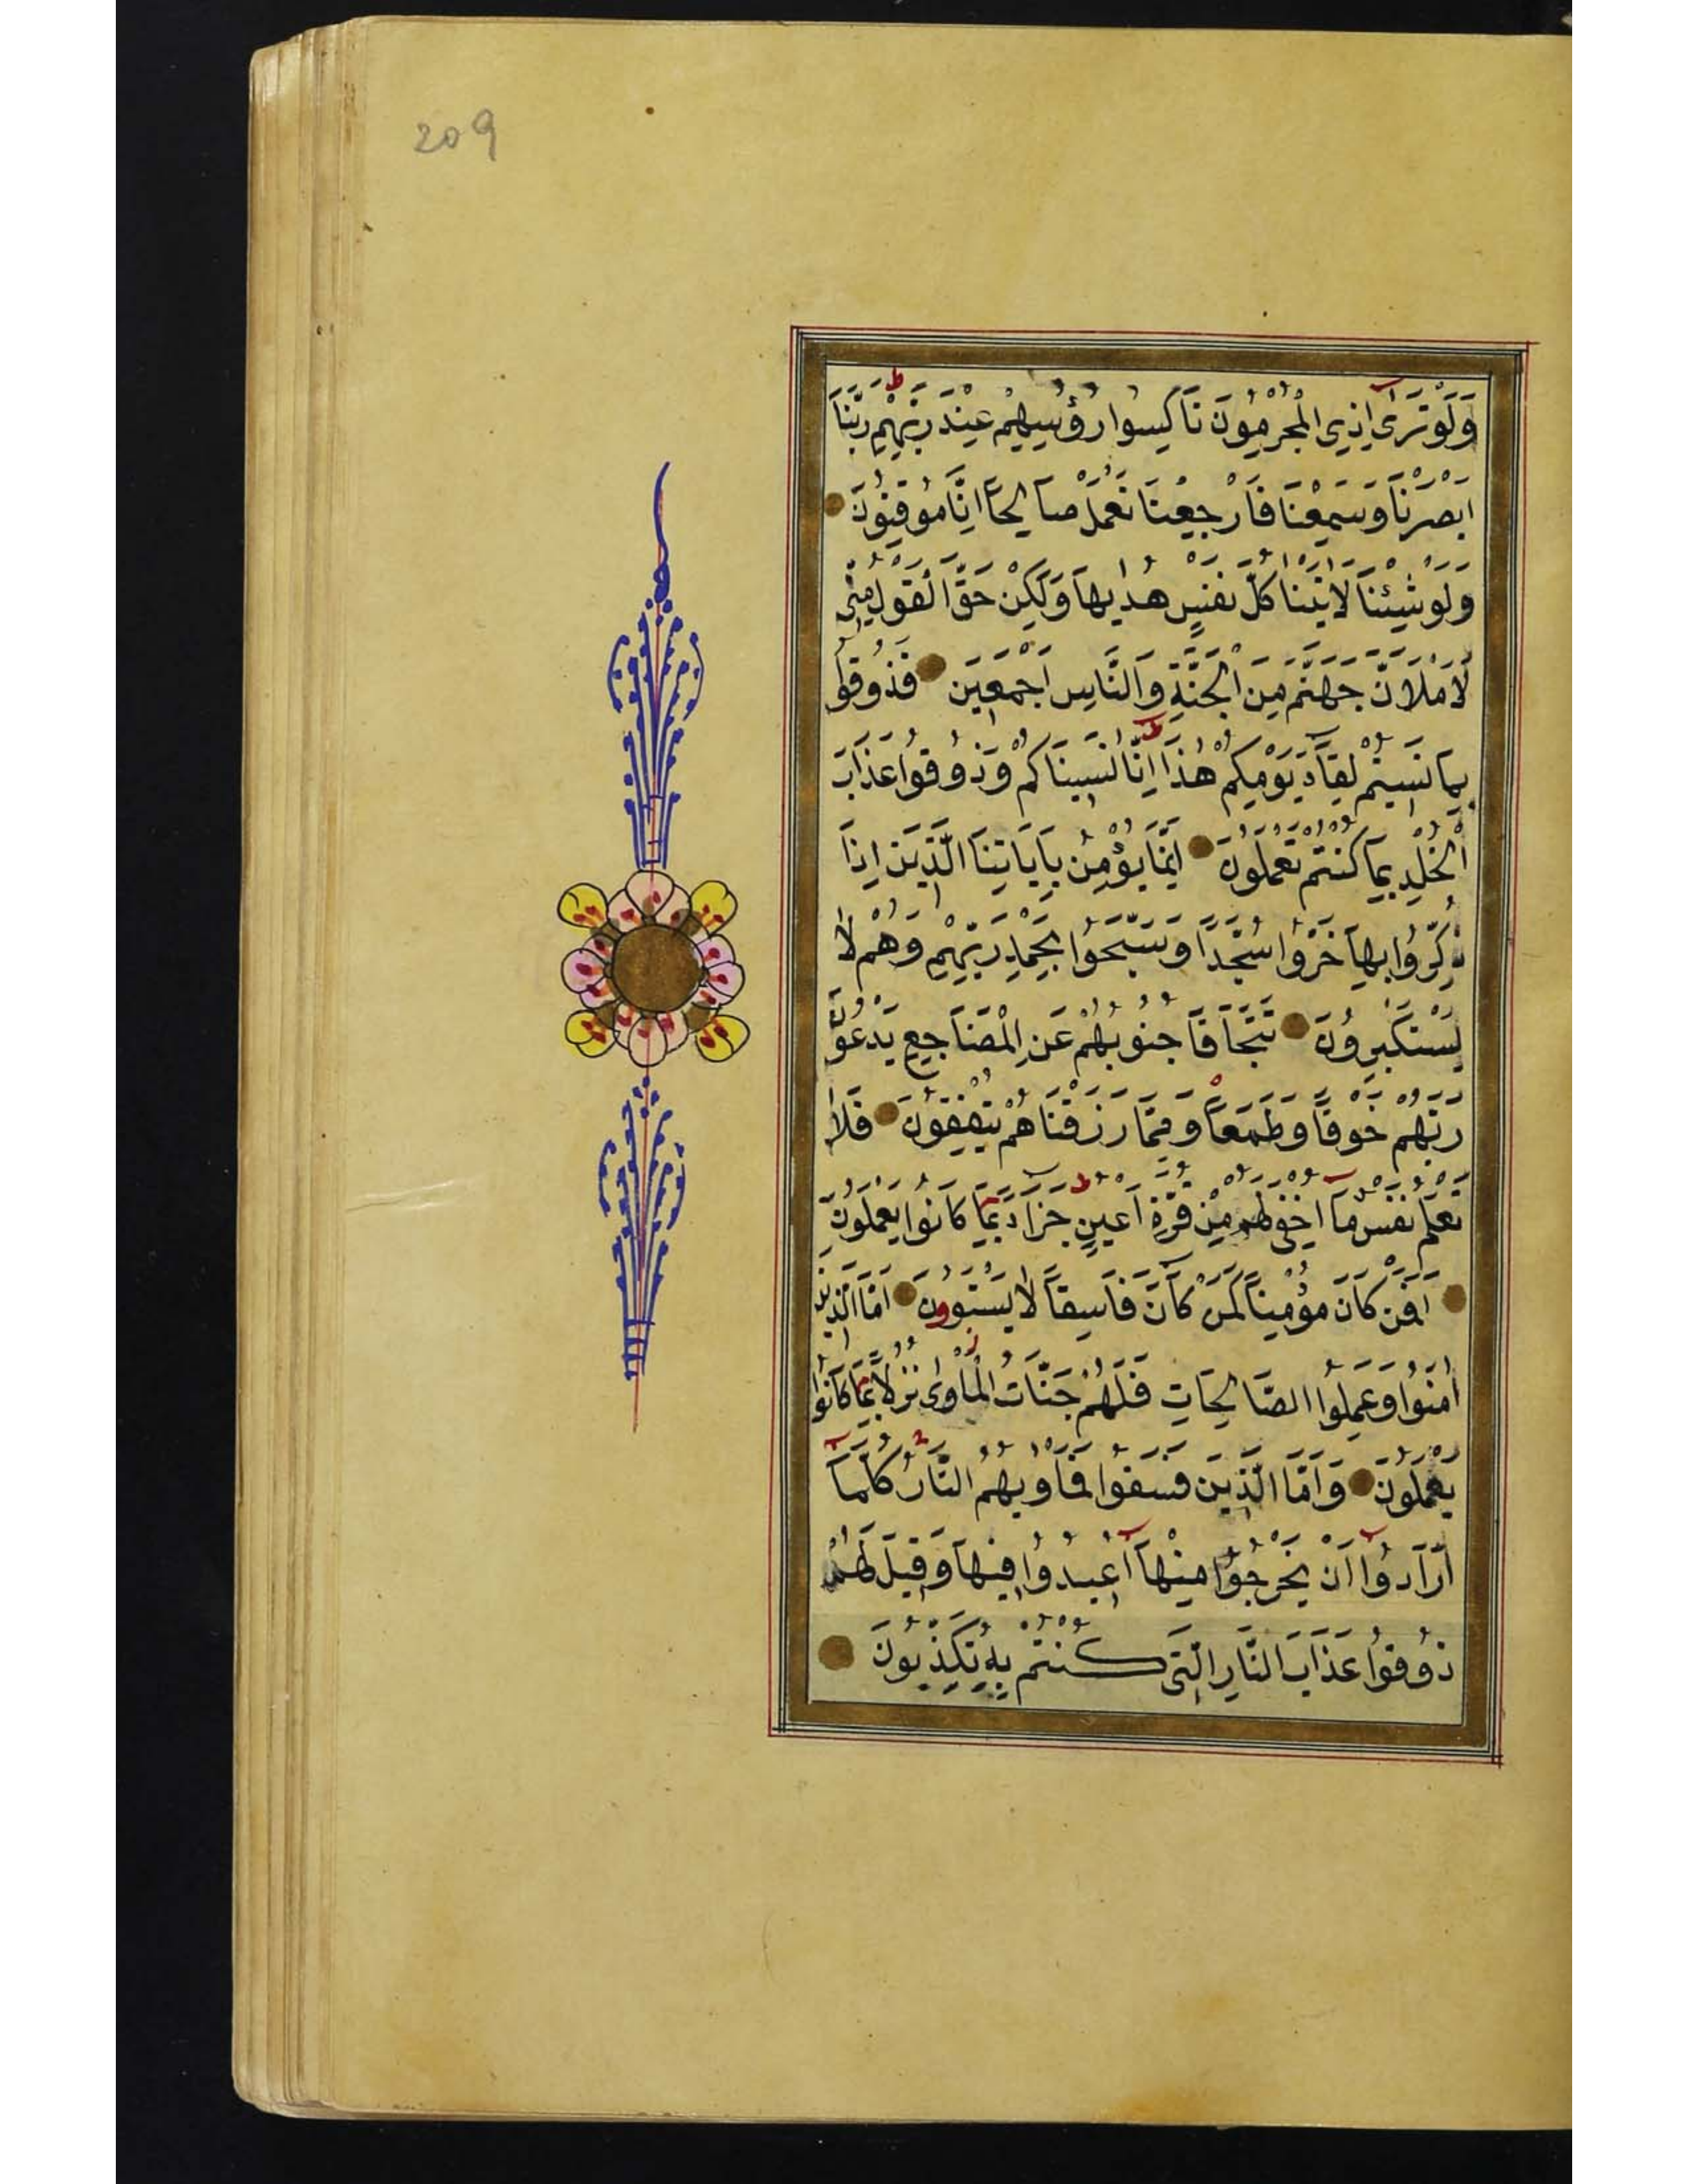 209
وَلَوْ تَرٰى اِذِ الْمُجْرِمُونَ نَاكِسُوا رُؤُسِهِمْ عِنْدَ رَبِّهِمْ رَبَّنَا
اَبْصَرْنَا وَسَمِعْنَا فَارْجِعْنَا نَعْمَلْ صَالِحًا اِنَّا مُوقِنُونَ
وَلَوْ شِئْنَا لَاٰتَيْنَا كُلَّ نَفْسٍ هُدٰيهَا وَلٰكِنْ حَقَّ الْقَوْلُ مِنّٖى
لَاَمْلَاَنَّ جَهَنَّمَ مِنَ الْجِنَّةِ وَالنَّاسِ اَجْمَعٖينَ فَذُوقُوا
بِمَا نَسٖيتُمْ لِقَآءَ يَوْمِكُمْ هٰذَا اِنَّا نَسٖينَاكُمْ وَذُوقُوا عَذَابَ
الْخُلْدِ بِمَا كُنْتُمْ تَعْمَلُونَ اِنَّمَا يُؤْمِنُ بِاٰيَاتِنَا الَّذٖينَ اِذَا
ذُكِّرُوا بِهَا خَرُّوا سُجَّدًا وَسَبَّحُوا بِحَمْدِ رَبِّهِمْ وَهُمْ لَا
يَسْتَكْبِرُونَ تَتَجَافَا جُنُوبُهُمْ عَنِ الْمَضَاجِعِ يَدْعُونَ
رَبَّهُمْ خَوْفًا وَطَمَعًا وَمِمَّا رَزَقْنَاهُمْ يُنْفِقُونَ فَلَا
تَعْلَمُ نَفْسٌ مَآ اُخْفِىَ لَهُمْ مِنْ قُرَّةِ اَعْيُنٍ جَزَآءً بِمَا كَانُوا يَعْمَلُونَ
اَفَمَنْ كَانَ مُؤْمِنًا كَمَنْ كَانَ فَاسِقًا لَا يَسْتَوُونَ اَمَّا الَّذٖينَ
اٰمَنُوا وَعَمِلُوا الصَّالِحَاتِ فَلَهُمْ جَنَّاتُ الْمَاْوٰى نُزُلًا بِمَا كَانُوا
يَعْمَلُونَ وَاَمَّا الَّذٖينَ فَسَقُوا فَمَاْوٰيهُمُ النَّارُ كُلَّمَآ
اَرَادُوا اَنْ يَخْرُجُوا مِنْهَآ اُعٖيدُوا فٖيهَا وَقٖيلَ لَهُمْ
ذُوقُوا عَذَابَ النَّارِ الَّتٖى كُنْتُمْ بِهٖ تُكَذِّبُونَ